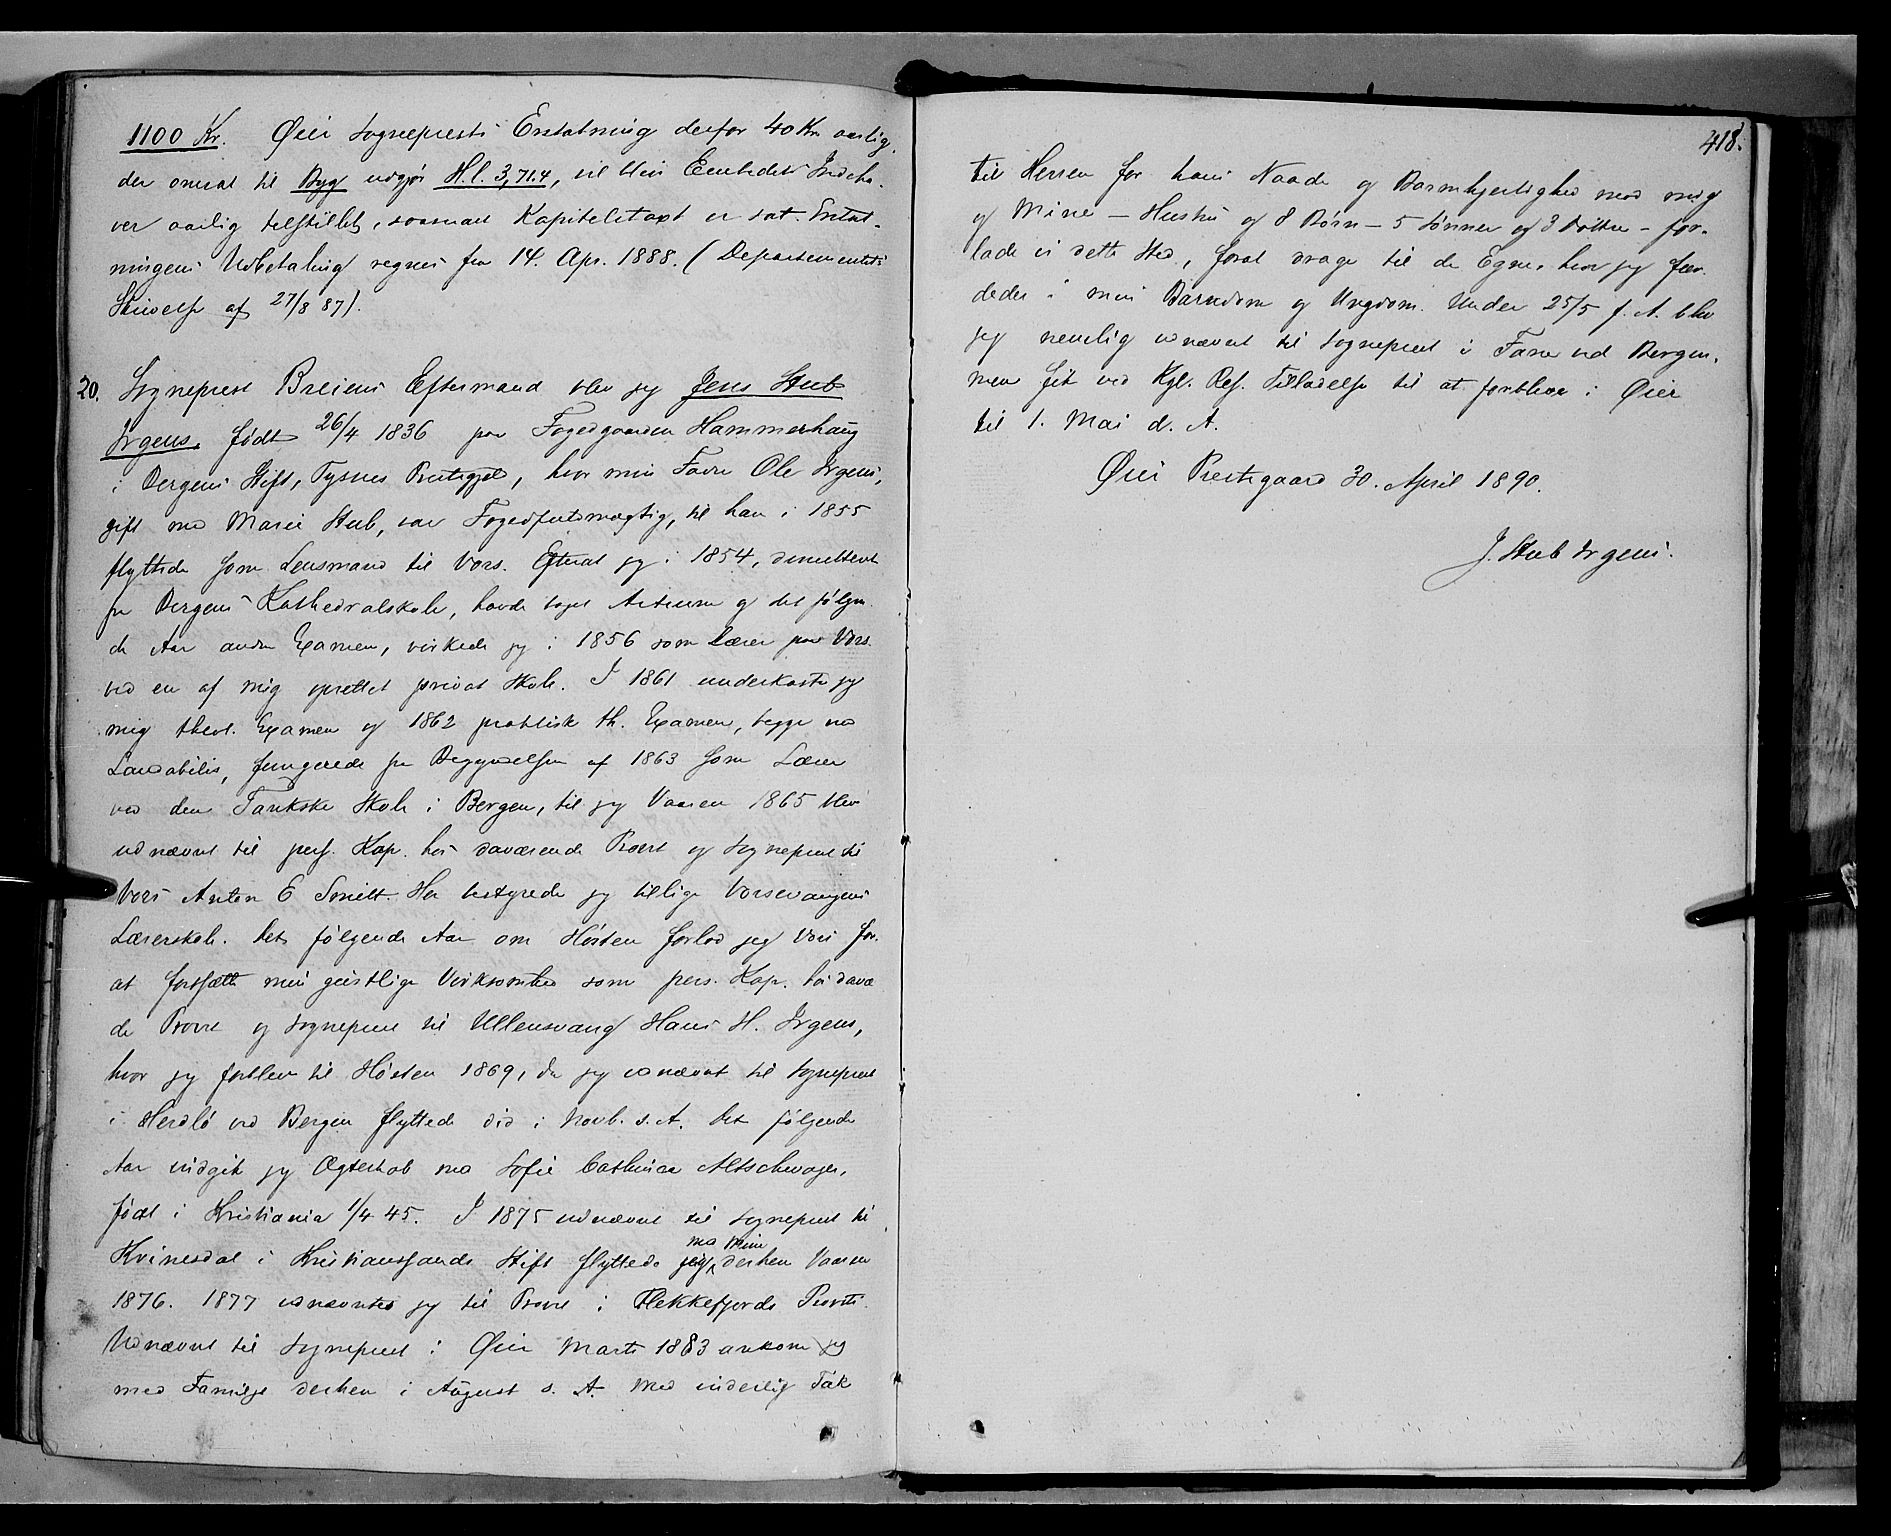 1100 Kr. Øier Sogneprests Erstatning derfor 40 Kr aarlig,
der omsat til Byg udgjør H.l. 3,71.4, vil blive Embedets Indeha-
ver aarlig tilstillet, saasnart Kapitelstaxt er sat. Erstat-
ningens Udbetaling regnes fra 14. Apr. 1888. (Departementets
Skrivelse af 27/8 87).
20. Sogneprest Breiens Eftermand blev jeg Jens Stub
Irgens, født 26/4 1836 paa Fogedgaarden Hammerhaug
i Bergens Stift, Tysnes Prestegjeld, hvor min Fader Ole Irgens,
gift med Marie Stub, var Fogedfuldmægtig, til han i 1855
flyttede som Lensmand til Vors. Efterat jeg i 1854, dimitteret
fra Bergens Kathedralskole, havde taget Artium og det følgen-
de Aar anden Examen, virkede jeg i 1856 som Lærer paa Vors.
ved en af mig oprettet privat Skole. I 1861 underkastede jeg
mig theol. Examen og 1862 praktisk th. Examen, begge med
Laudabilis, fungerede fra Begyndelsen af 1863 som Lærer
ved den Tankske Skole i Bergen, til jeg Vaaren 1865 blev
udnævnt til pers. Kap. hos daværende Provst og Sogneprest til
Vors Anton E Smitt. Her bestyrede jeg tillige Vossevangens
Lærerskole. Det følgende Aar om Høsten forlod jeg Vors for
at fortsætte min geistlige Virksomhed som pers. Kap. hos davæ
de Provst og Sogneprest til Ullensvang Hans H. Irgens,
hvor jeg forblev til Høsten 1869, da jeg udnævnt til Sogneprest
i Herdlø ved Bergen flyttede did i Novb. s. A. Det følgende
Aar indgik jeg Ægteskab med Sofie Cathrine Altschwager,
født i Kristiania 1/4 45. I 1875 udnævnt til Sogneprest til
Kvinesdal i Kristianssands Stift flyttede jeg med Mine derhen Vaaren
1876. 1877 udnævntes jeg til Provst i Flekkefjords Provsti.
Udnævnt til Sogneprest i Øier Marts 1883 ankom jeg
med Familje derhen i August s. A. Med inderlig Tak
418.
til Herren for hans Naade og Barmhjertighed mod mig
og Mine – Hustru og 8 Børn – 5 Sønner og 3 Døttre – for-
lade vi dette Sted, forat drage til de Egne, hvor jeg fær-
dedes i min Barndom og Ungdom. Under 25/5 f. A. blev
jeg nemlig udnævnt til Sogneprest i Fane ved Bergen,
men fik ved Kgl. Res. Tilladelse til at forblive i Øier
til 1. Mai d. A.
Øier Prestegaard 30. April 1890.
J. Stub Irgens.